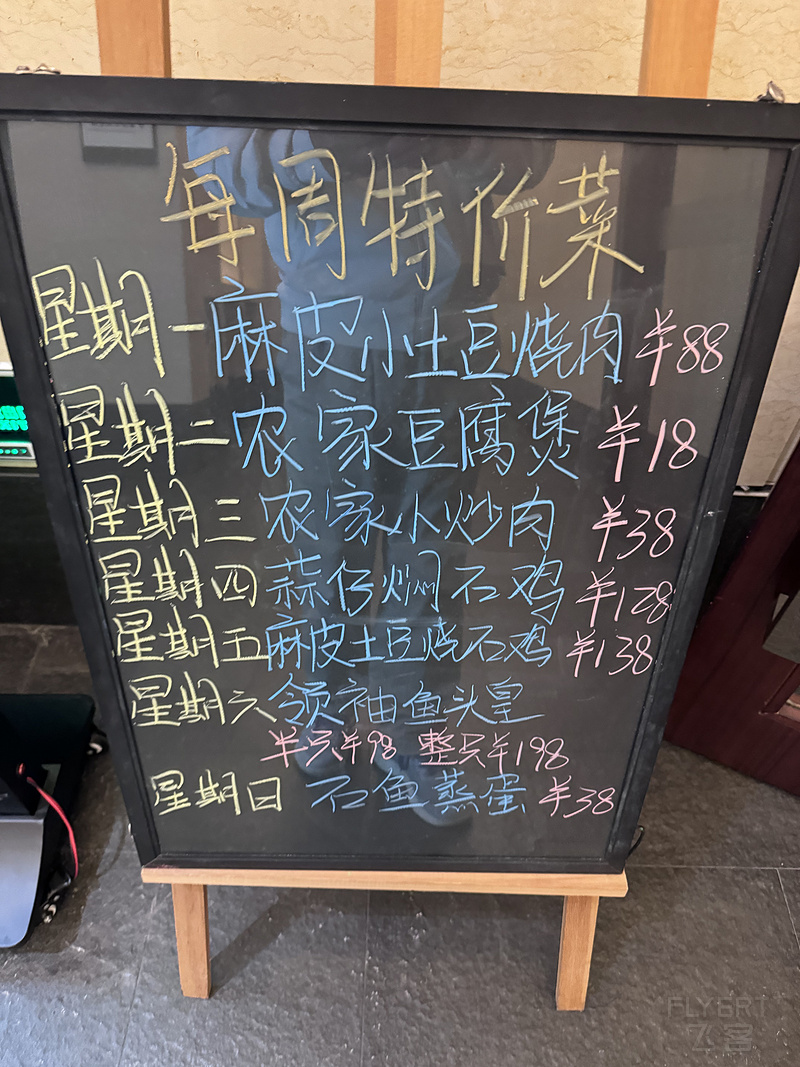 每周特价菜
星期一麻皮小土豆烧肉 ¥88
星期二农家豆腐煲 ¥18
星期三农家小炒肉 ¥38
星期四蒜仔焖石鸡 ¥128
星期五麻皮土豆烧石鸡 ¥138
星期六领袖鱼头皇
半只¥98 整只¥198
星期日 石鱼蒸蛋 ¥38
FLYERT
飞客